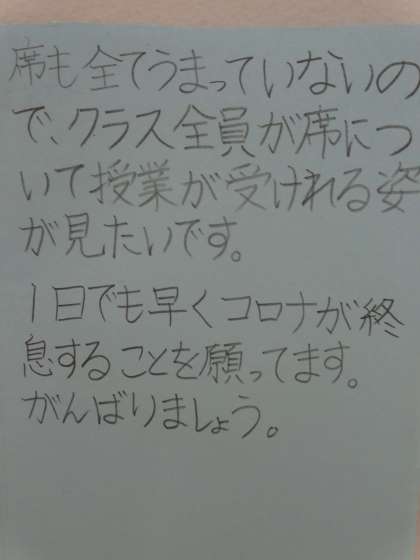 席も全てうまっていないの
で、クラス全員が席につ
いて授業が受けれる姿
が見たいです。
1日でも早くコロナが終
息することを願ってます。
がんばりましょう。